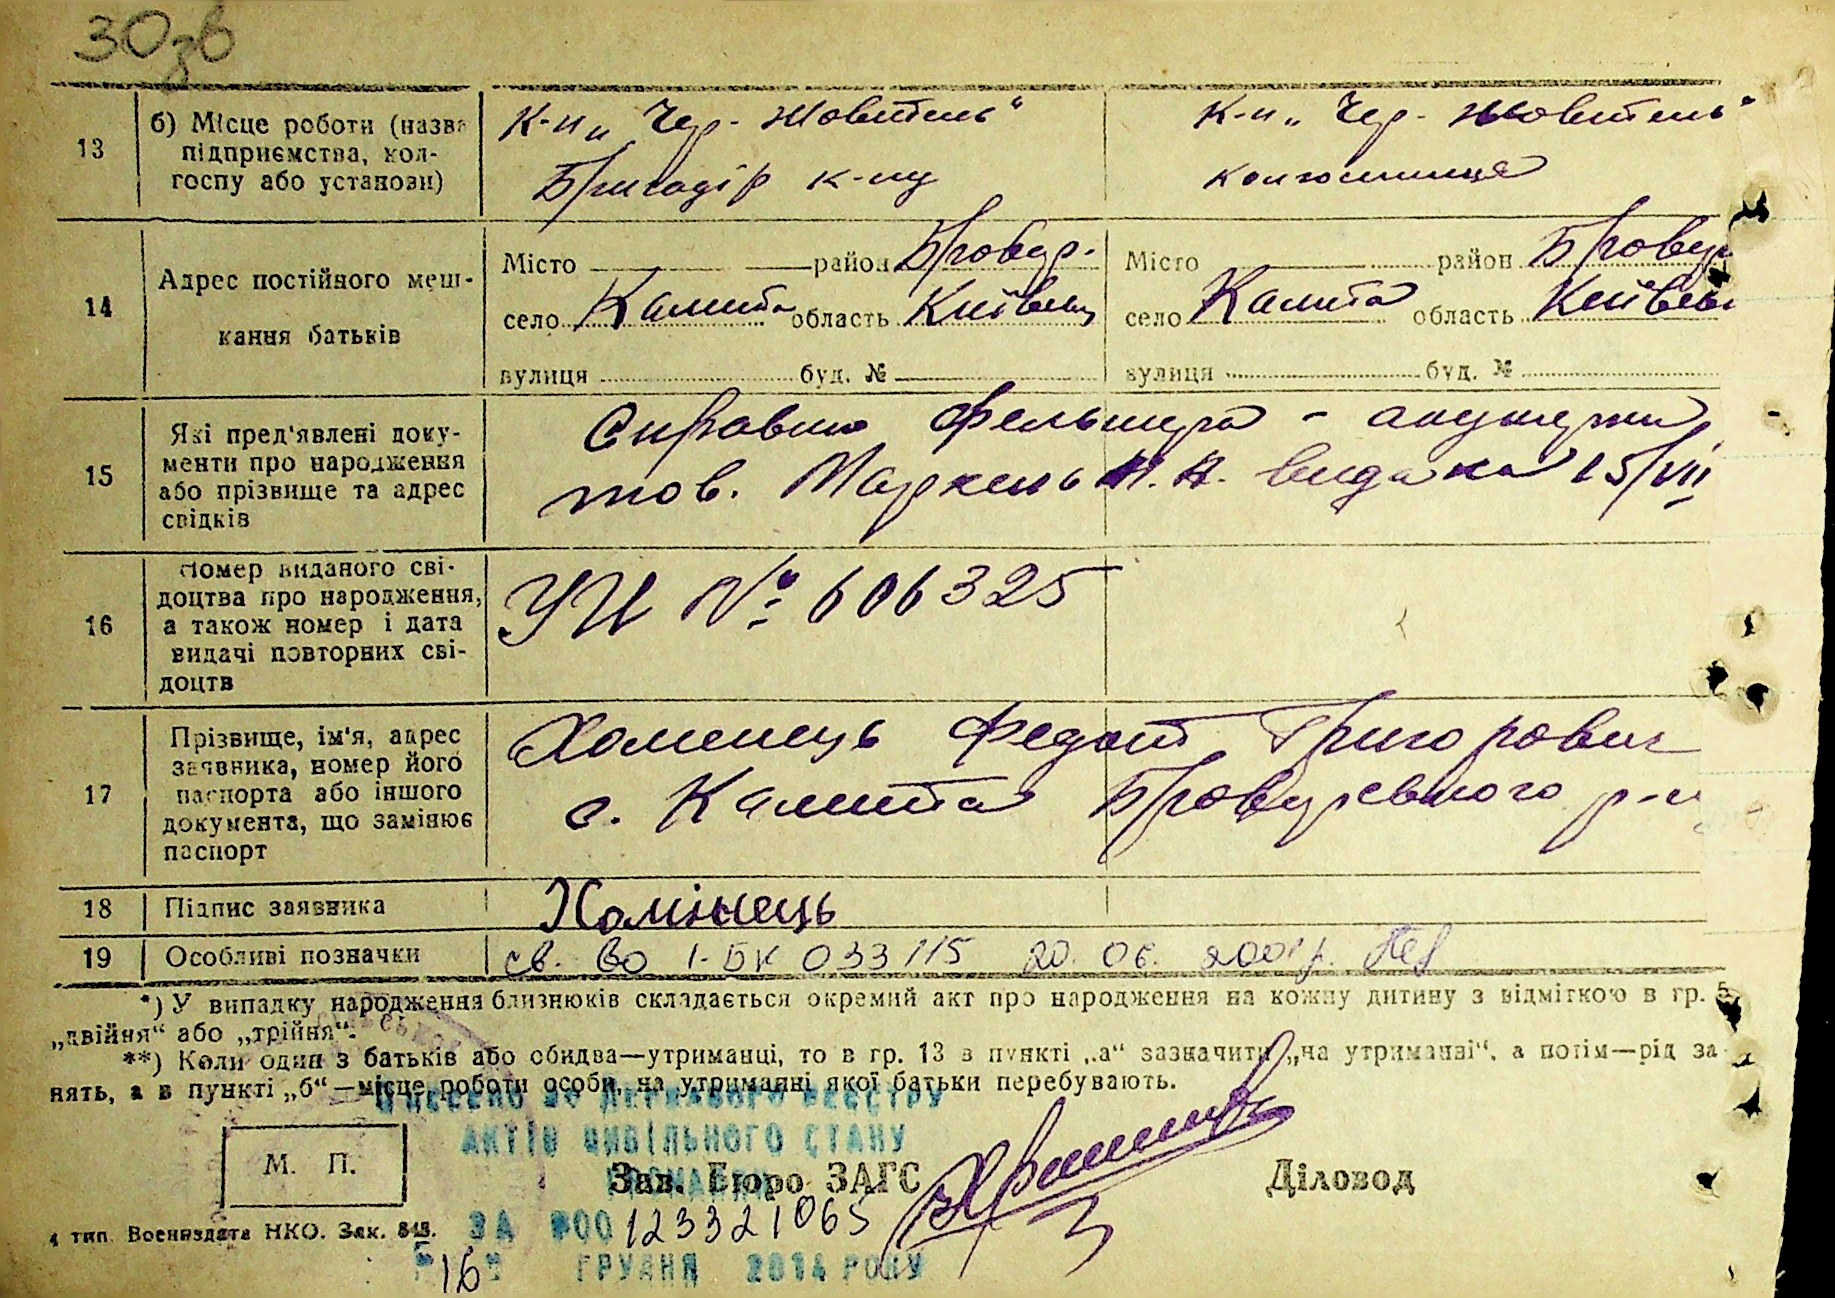 30зв
13
б) Місце роботи (назва
підприємства, кол-
госпу або установи)
К-п „Чер. Жовтень“
Бригадір к-пу
К-п „Чер. Жовтень“
колгоспниця
14
Адрес постійного меш-
кання батьків
Місто район Бровар.
село Калита область Київськ
вулиця буд. №
Місто район Бровар
село Калита область Київськ
вулиця буд. №
15
Які пред'явлені доку-
менти про народження
або прізвище та адрес
свідків
Справка фельшера - акушерки
тов. видана 15/VII
16
Номер виданого сві-
доцтва про народження,
а також номер і дата
видачі повторних сві-
доцтв
УИ № 606325
17
Прізвище, ім'я, адрес
заявника, номер його
паспорта або іншого
документа, що замінює
паспорт
Хоменець Федот Григорович
с. Калита Броварського р-н
18
Підпис заявника
Хомінець
19
Особливі позначки
св. во І-БК 033115 20. 06. 2001р.
*) У випадку народження близнюків складається окремий акт про народження на кожну дитину з відміткою в гр. 5
„двійня“ або „трійня“.
**) Коли один з батьків або обидва—утриманці, то в гр. 13 в пункті „а“ зазначити „на утриманні“, а потім—рід за
нять, а в пункті „б“—місце роботи особи, на утриманні якої батьки перебувають.
ВНЕСЕНО ДО ДЕРЖАВНОГО РЕЄСТРУ
АКТІВ ЦИВІЛЬНОГО СТАНУ
ГРОМАДЯН
М. П.
Зав. Бюро ЗАГС
Діловод
4 тип. Воениздата НКО. Зак. 848.
ЗА №00123321065
"16" ГРУДНЯ 2014 РОКУ